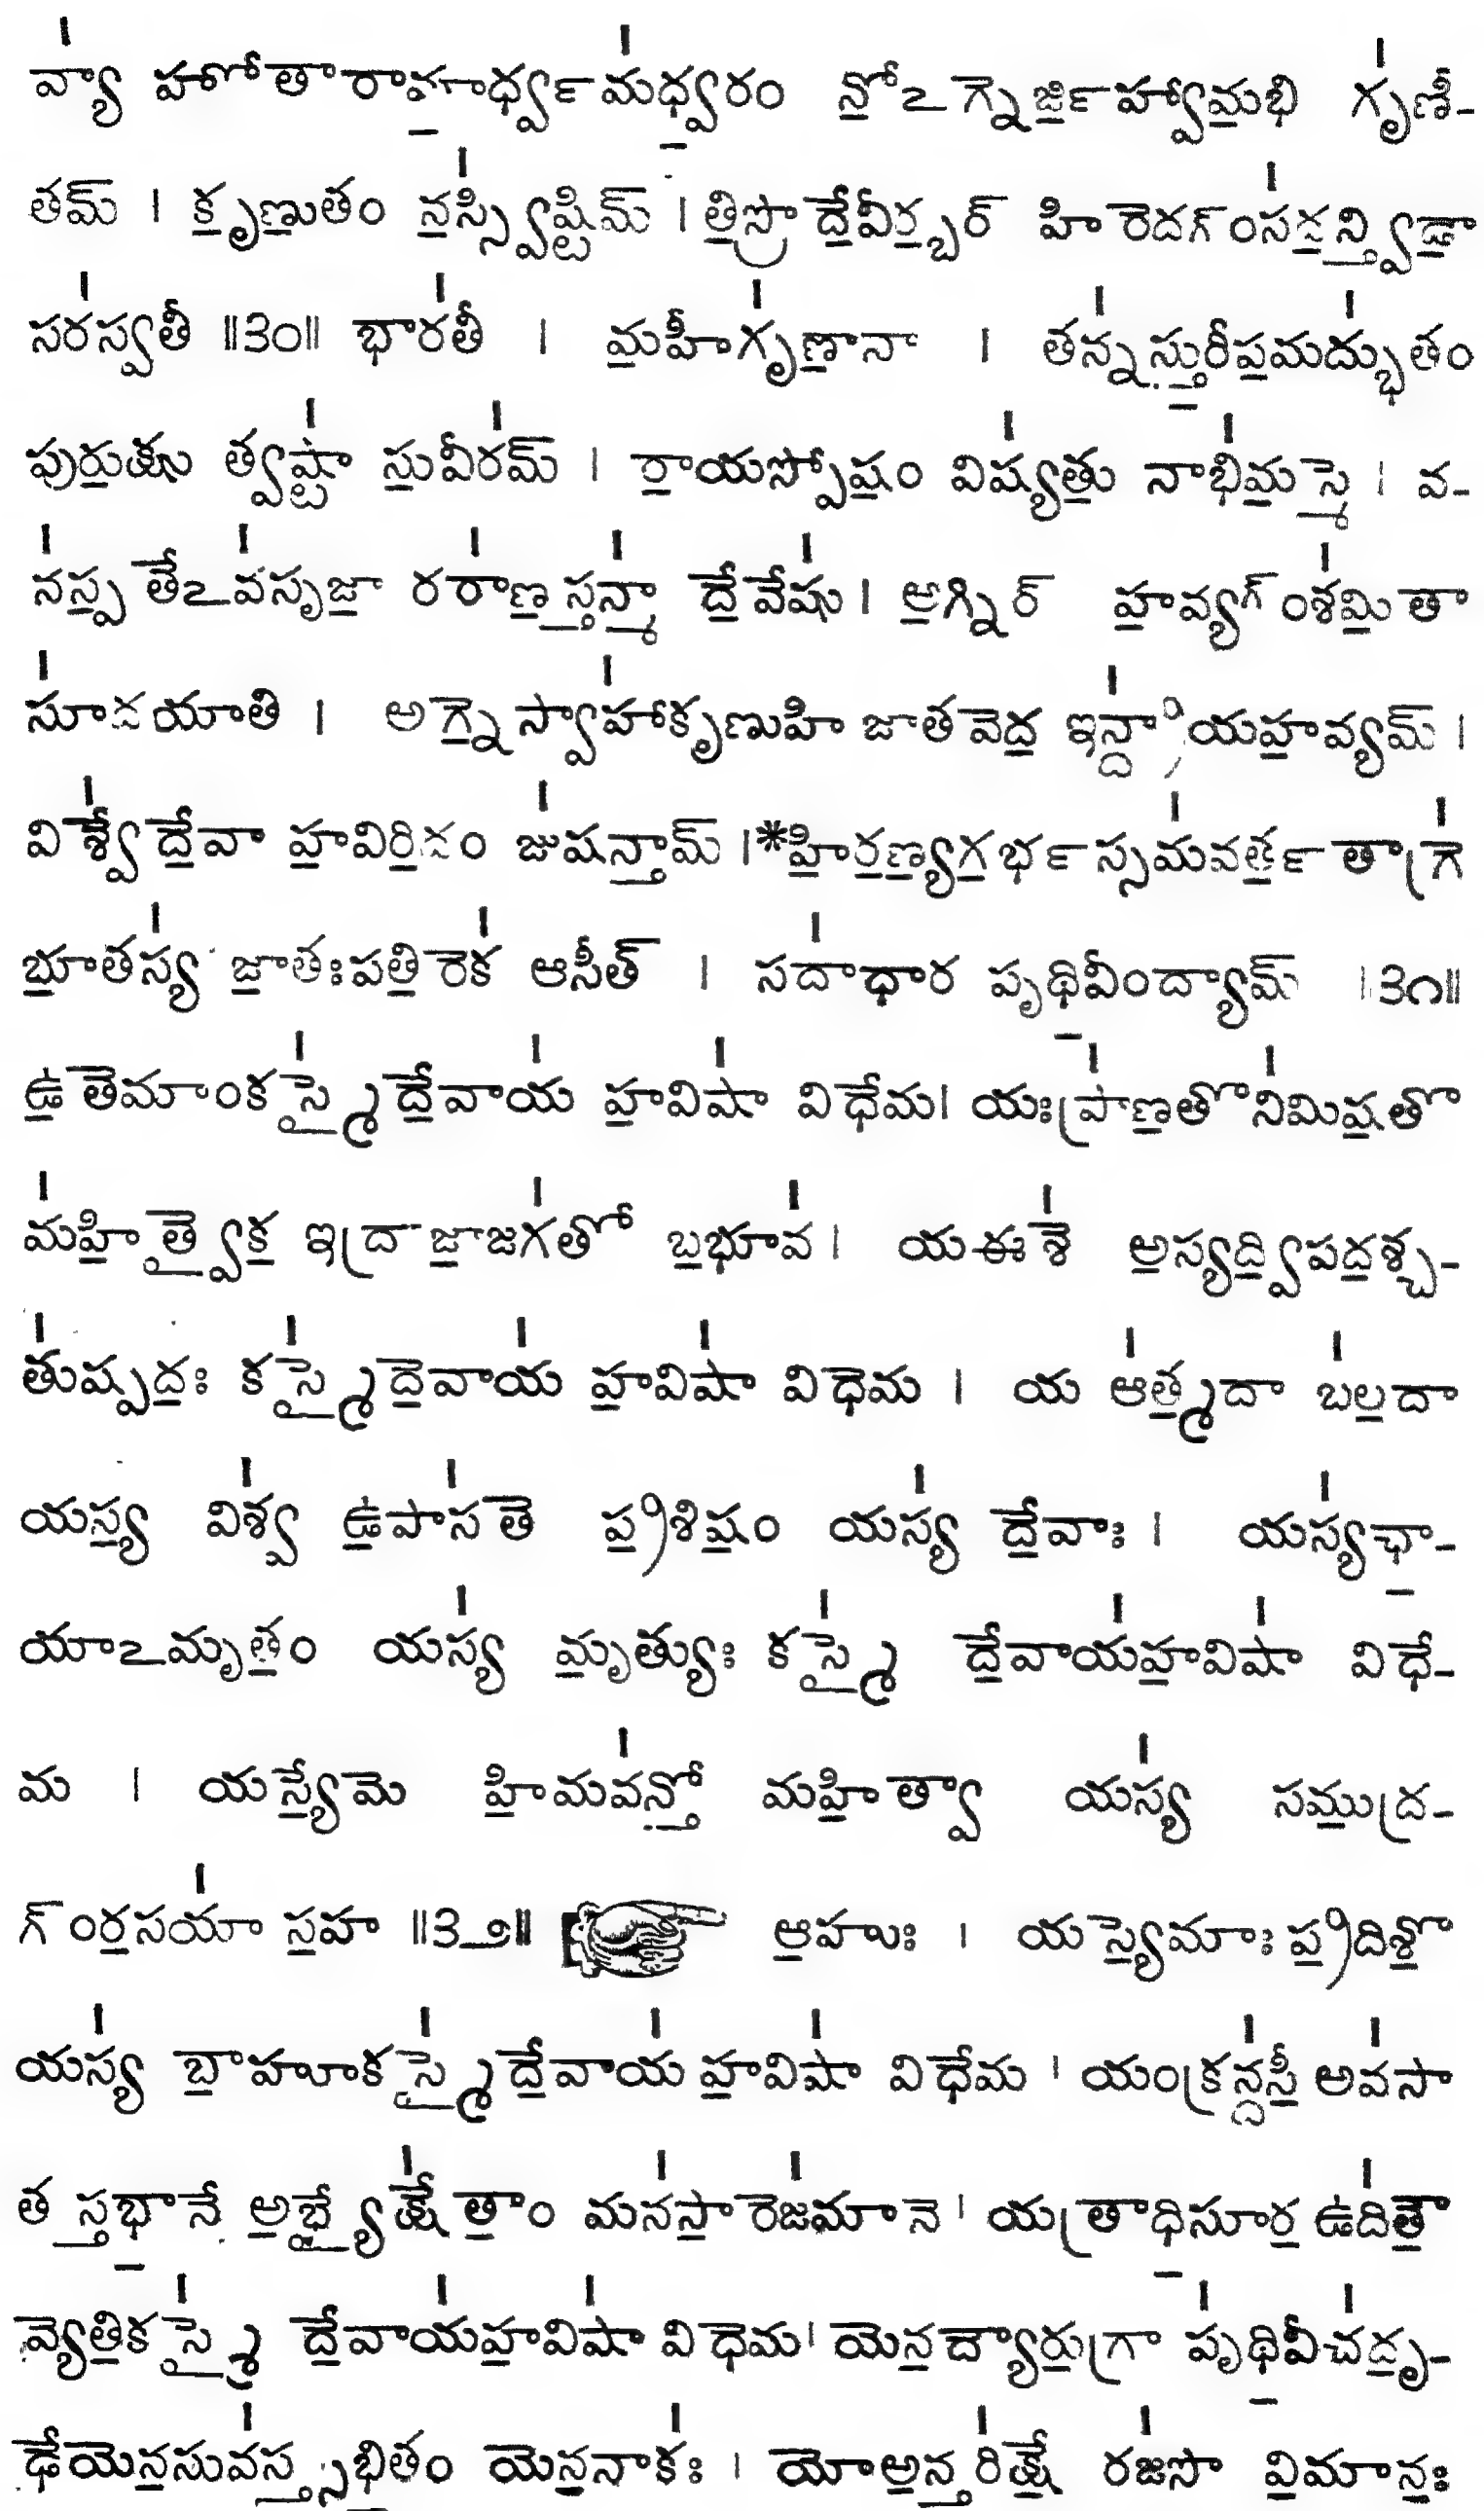 వ్యా॑ హోతారావూ॒ర్ధ్వమ॑ధ్వ॒రం నో॒ఽగ్నెర్జి॒హ్వామ॒భి గృ॑ణీ-
తమ్ । కృ॒ణు॒తం న॒స్స్వి॑ష్టిమ్ । తి॒స్రో దే॒వీర్బ॒ర్ హి రెదగ్ంస॑ద॒న్త్వి॒డా॒
సర॑స్వతీ ॥౩౦॥ భార॑తీ । మ॒హీగృ॑ణా॒నా । తన్న॑స్తు॒రీప॒మద్భు॑తం
పురు॒క్షు త్వష్టా॑ సు॒వీర॑మ్ । రా॒యస్పోష॒ం విష్య॑తు॒ నాభి॑మ॒స్మె । వ-
న॑స్ప॒తేఽవ॑సృజా॒ రరా॑ణ॒స్తన్మా॑ దే॒వేషు॑ । అ॒గ్నిర్ హ॒వ్యగ్ంశ॑మి॒తా
సూ॑దయాతి । అగ్నె॒స్వాహా॑కృణుహి జాతవెద॒ ఇన్ద్రా॑యహ॒వ్యమ్ ।
విశ్వే॑దే॒వా హ॒విరి॒దం జు॑షన్తామ్ ।*హి॒ర॒ణ్య॒గ॒ర్భస్సమ॑వర్త॒తాగ్రె॑
భూ॒తస్య॑ జా॒తఃపతి॒రెక॑ ఆసీత్ । సదా॑ధార పృథి॒వీంద్యామ్ ॥౩౧॥
ఉ॒తెమాంకస్మై॑దే॒వాయ॑ హ॒విషా॑ విధేమ। యఃప్రా॑ణ॒తొనిమి॑ష॒తొ
మ॑హి॒త్వైక॒ ఇద్రాజా॒జగ॑తో బ॒భూవ॑। యఈశే॑ అ॒స్యద్వి॒పద॒శ్చ-
తు॑ష్పద॒ః కస్మై॑దె॒వాయ॑ హ॒విషా॑ విధెమ । య ఆ॑త్మ॒దా బ॑ల॒దా
యస్య॒ విశ్వ॑ ఉ॒పాస॑తె ప్ర॒శిష॒ం యస్య॑ దే॒వాః । యస్య॑ఛా॒-
యాఽమృత॒ం యస్య॑ మృ॒త్యుః కస్మై॑ దే॒వాయ॑హ॒విషా॑ విధే-
మ । యస్యే॒మె హి॒మవ॑న్తో మహి॒త్వా యస్య॑ సము॒ద్ర-
గ్ంర॒సయా॑ స॒హ ॥౩౨॥ ఆ॒హుః । యస్యె॒మాః ప్ర॒దిశొ॒
యస్య॑ బా॒హూకస్మై॑దే॒వాయ॑ హ॒విషా॑ విధేమ । యంక్రన్ద॑సీ॒ అవ॑సా
తస్తభా॒నే అ॒భ్యైక్షే॑తా॒ం మన॑సా॒రెజ॑మానె । యత్రాధి॒సూర॒ ఉది॑తౌ॒
వ్యెతి॒కస్మై॑ దే॒వాయ॑హ॒విషా॑ విధెమ। యెన॒ద్యౌరు॒గ్రా పృ॑థి॒వీచ॑దృ॒-
ఢేయెన॒సువ॑స్స్తభి॒తం యెన॒నాక॑ః । యోఅ॒న్తరి॑క్షే రజ॑సొ వి॒మాన॒ః